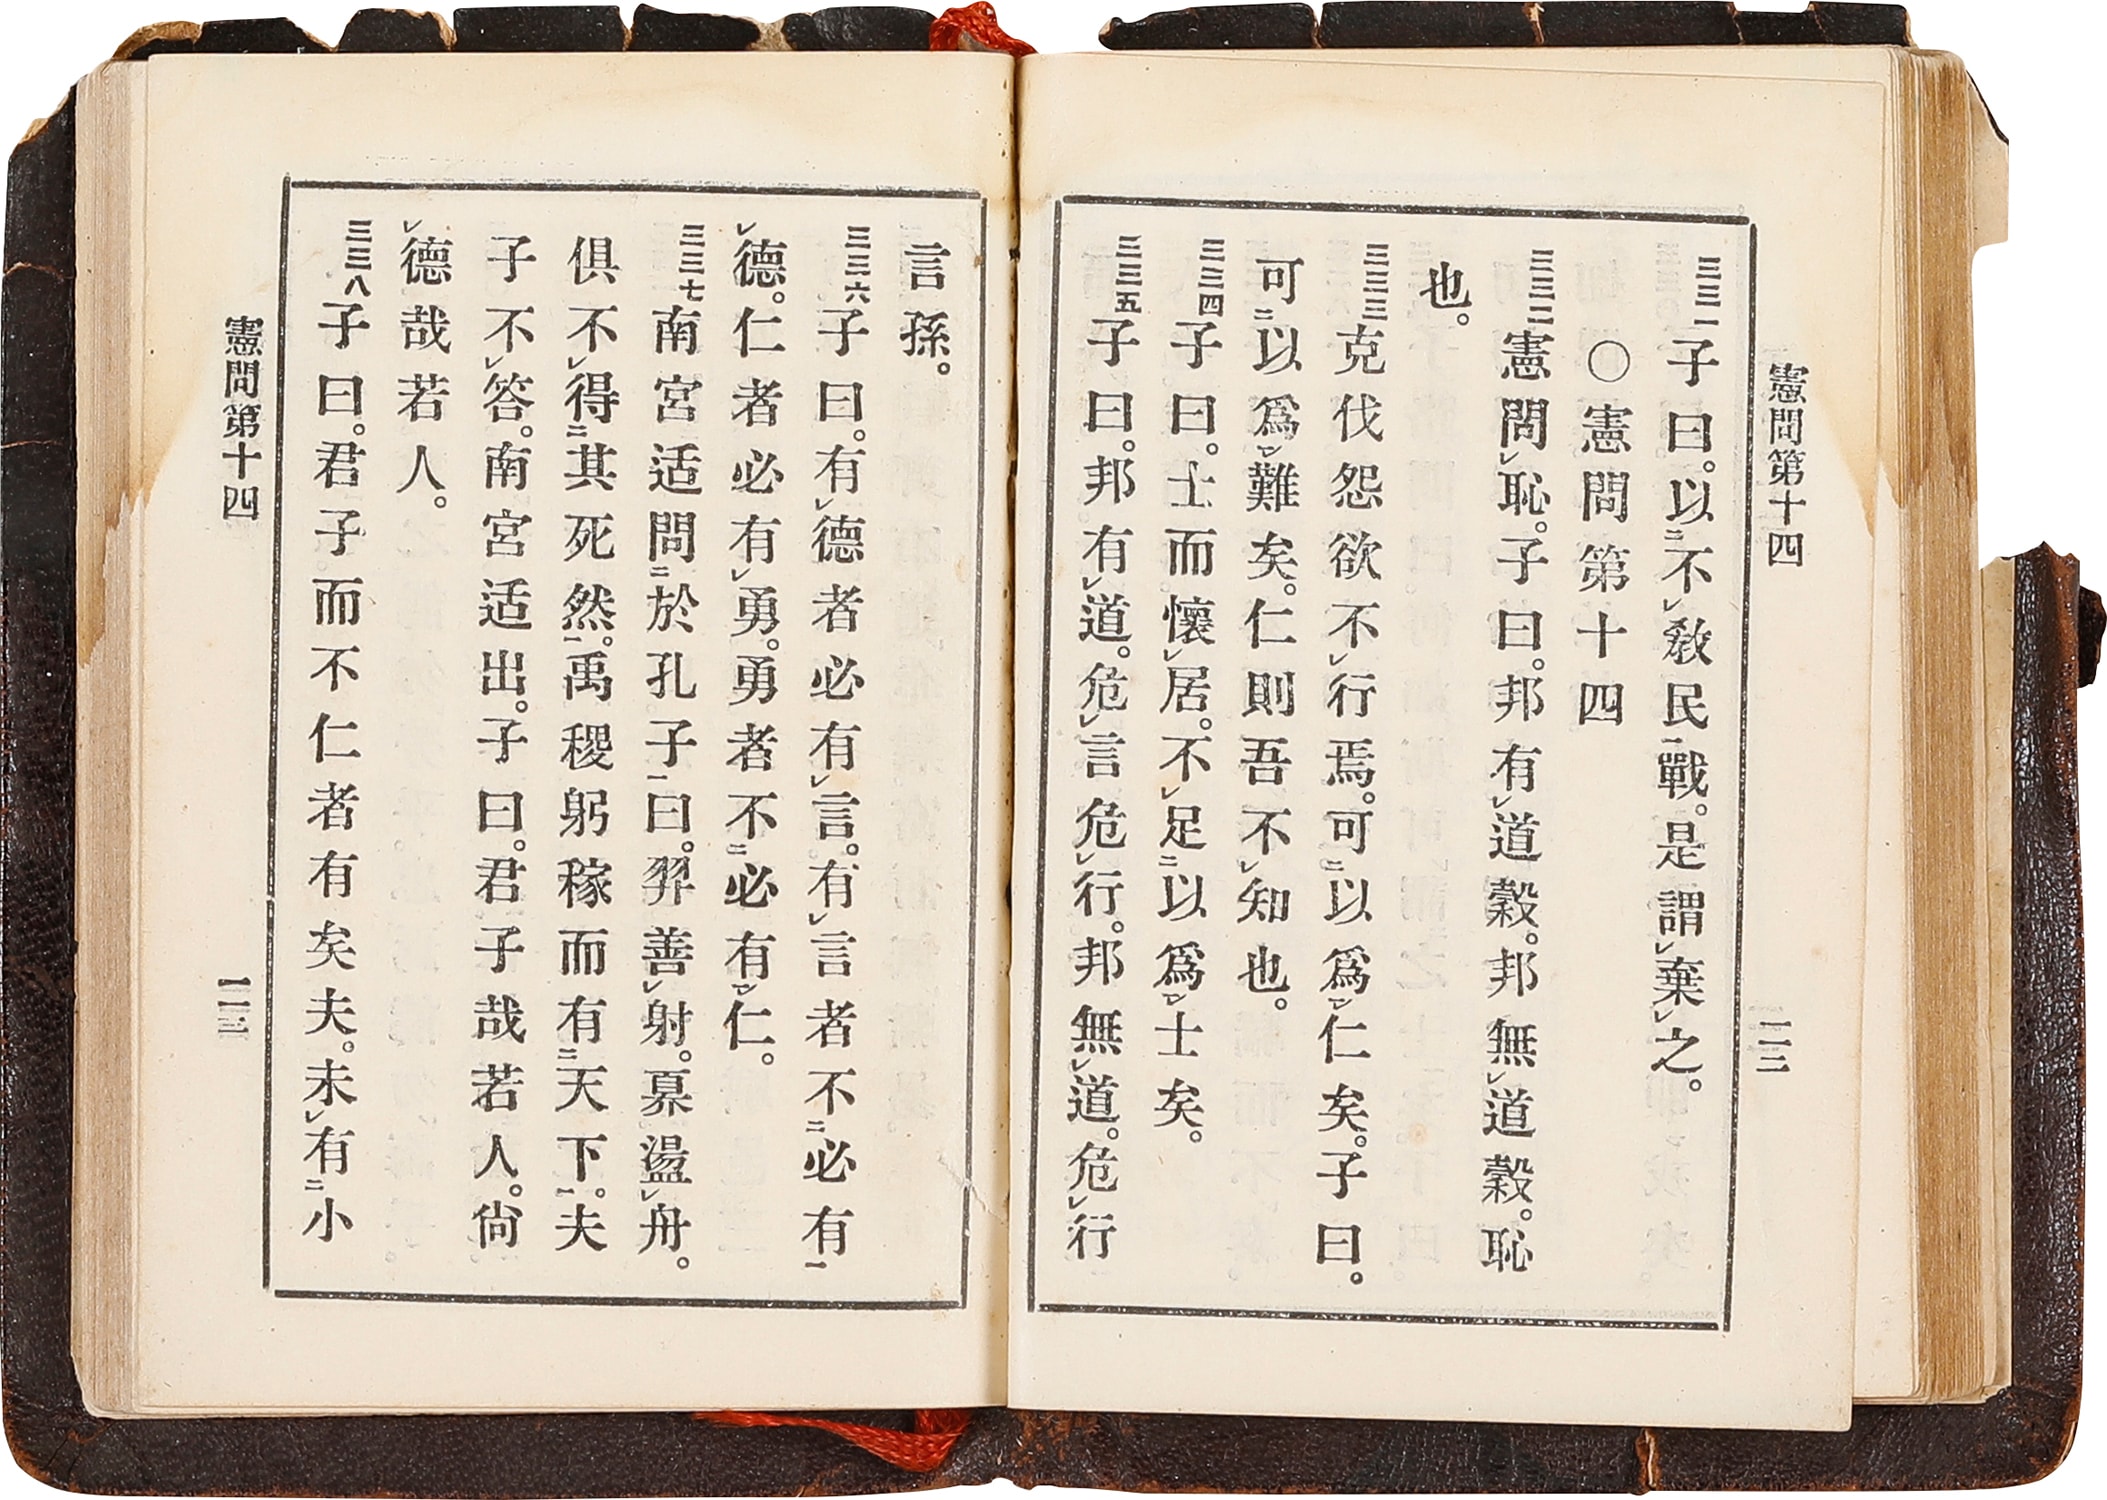 憲問第十四
一二二
三三一子曰。以㆑不㆑敎民㆒戰。是謂㆑棄㆑之。
○憲問第十四
三三二憲問㆑恥。子曰。邦有㆑道穀。邦無㆑道穀。恥
也。
三三三克伐怨欲不㆑行焉。可㆓以爲㆑仁矣。子曰。
可㆓以爲㆑難矣。仁則吾不㆑知也。
三三四子曰。士而懷㆑居。不㆑足㆓以爲㆑士矣。
三三五子曰。邦有㆑道。危㆑言危㆑行。邦無㆑道。危㆑行
言孫。
三三六子曰。有㆑德者必有㆑言。有㆑言者不㆓必有㆒
㆑德。仁者必有㆑勇。勇者不㆓必有㆑仁。
三三七南宮适問㆓於孔子㆒曰。羿善㆑射。奡盪㆑舟。
俱不㆑得㆓其死然㆒。禹稷躬稼而有㆓天下㆒。夫
子不㆑答。南宮适出。子曰。君子哉若人。尙
㆑德哉若人。
三三八子曰。君子而不仁者有矣夫。未㆑有㆓小
憲問第十四
一二三